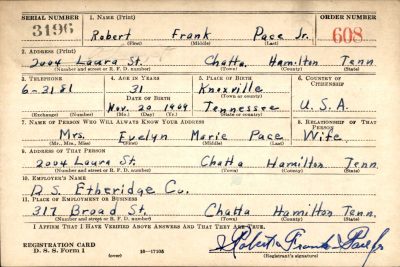 SERIAL NUMBER 1. NAME (Print) ORDER NUMBER
3196 Robert Frank Pace Jr. 608
(First) (Middle) (Last)
2. ADDRESS (Print)
2004 Laura St. Chatta Hamilton Tenn.
(Number and street or R. F. D. number) (Town) (County) (State)
3. TELEPHONE 4. AGE IN YEARS 5. PLACE OF BIRTH 6. COUNTRY OF CITIZENSHIP
6-3181 31 Knoxville
DATE OF BIRTH (Town or county)
Nov. 20 1909 Tennessee U.S.A.
(Exchange) (Number) (Mo.) (Day) (Yr.) (State or country)
7. NAME OF PERSON WHO WILL ALWAYS KNOW YOUR ADDRESS 8. RELATIONSHIP OF THAT PERSON
Mrs. Evelyn Marie Pace Wife
(Mr., Mrs., Miss) (First) (Middle) (Last)
9. ADDRESS OF THAT PERSON
2004 Laura St. Chatta Hamilton Tenn.
(Number and street or R. F. D. number) (Town) (County) (State)
10. EMPLOYER'S NAME
D.S. Etheridge Co.
11. PLACE OF EMPLOYMENT OR BUSINESS
317 Broad St. Chatta Hamilton Tenn.
(Number and street or R. F. D. number) (Town) (County) (State)
I AFFIRM THAT I HAVE VERIFIED ABOVE ANSWERS AND THAT THEY ARE TRUE.
REGISTRATION CARD
D. S. S. Form 1 (over) 16-17105
Robert Frank Pace Jr
(Registrant's signature)